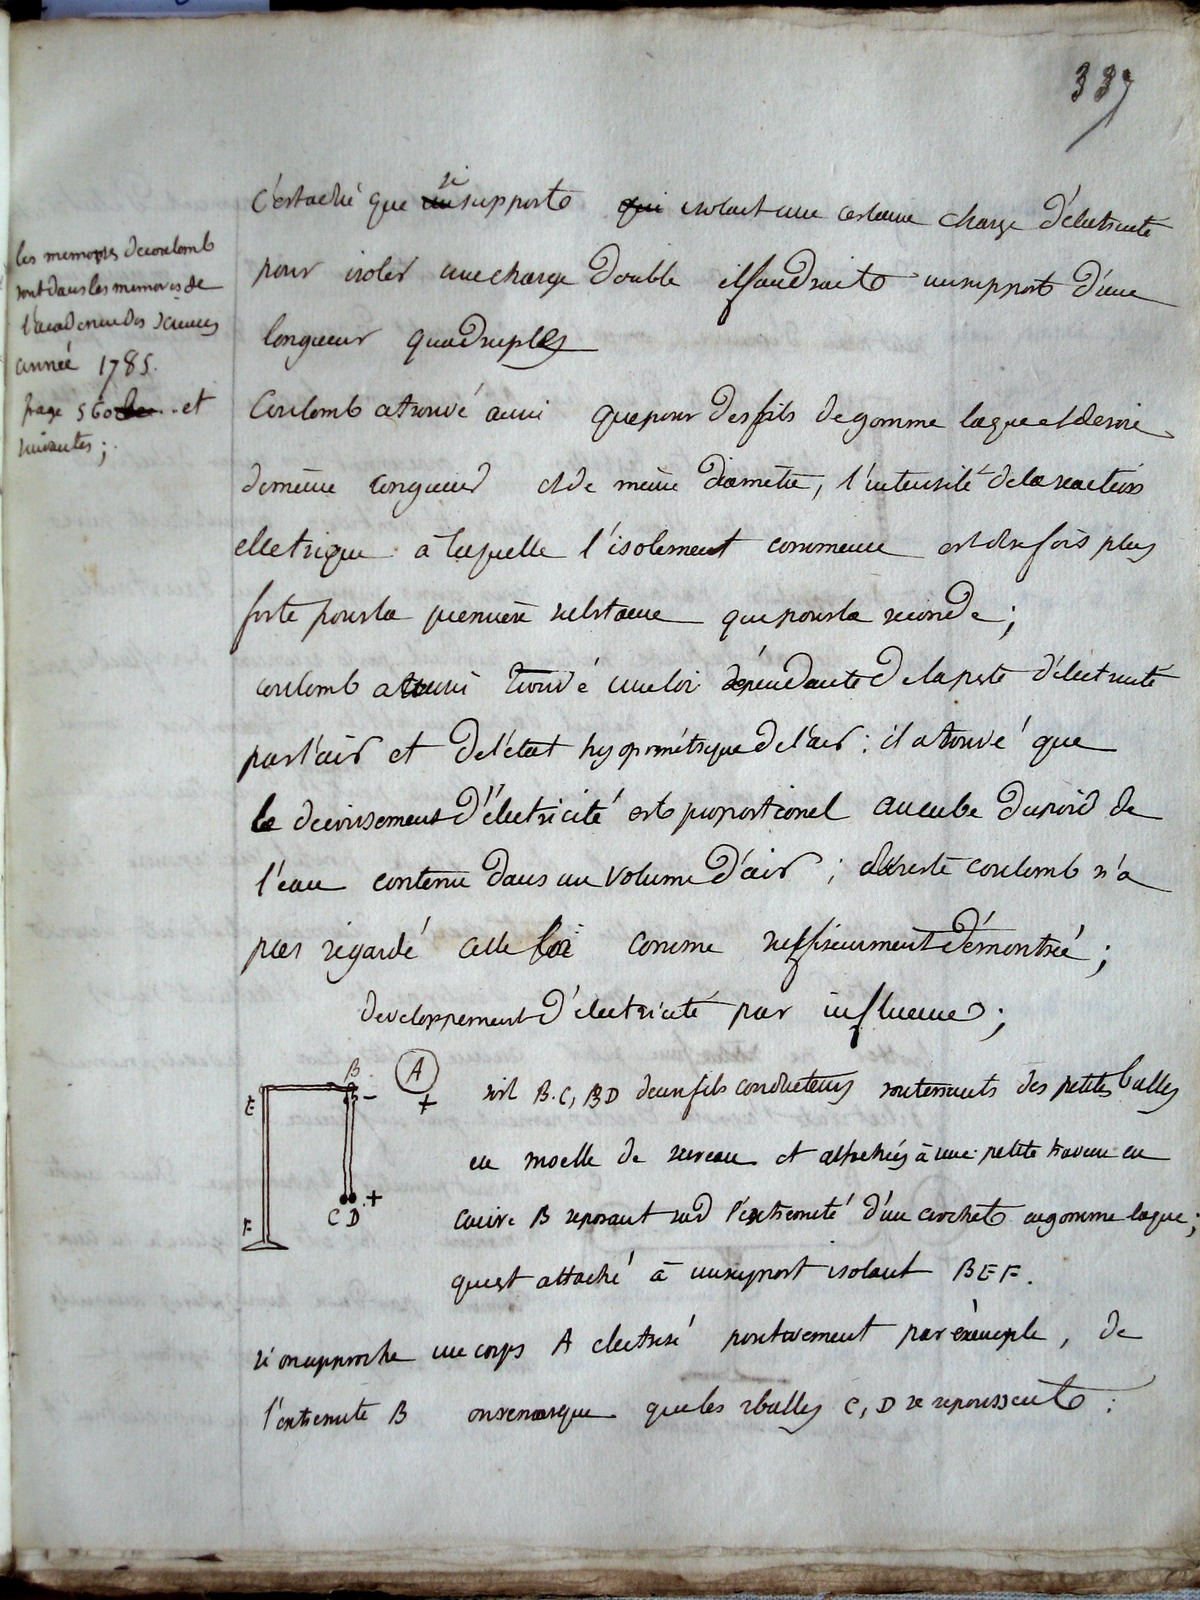 337
c'estadié que si support isolait une certaine charge d'électricité
pour isoler une charge double il faudrait un support d'une
longueur quadruple
les memoires de coulomb
sont dans les memoires de
l'academie des sciences
année 1785.
page 560 et
suivantes ;
Coulomb a trouvé aussi que pour des fils de gomme laque et de soie
de même longueur et de même diametre, l'intensité de la reaction
electrique à laquelle l'isolement commence est dix fois plus
forte pour la premiere substance que pour la seconde ;
coulomb a aussi trouvé une loi dépendante de la perte d'électricité
par l'air et de l'état hygrométrique de l'air : il a trouvé que
le decroisement d'électricité est proportionel au cube du poid de
l'eau contenu dans un volume d'air ; au reste coulomb n'a
pas régardé cette loi comme suffisemment démontrée ;
developpement d'électricité par influence ;
B A
E - +
C D +
F
soit B.C, BD deux fils conducteurs soutenants des petites balles
en moelle de sureau et attachés à une petite traverse en
cuivre B reposant sur l'extremité d'un crochet en gomme laque ;
qui est attaché à un support isolant BEF.
si on approche un corps A electrisé positivement par exemple, de
l'extremité B on remarque que les 2 balles C, D se repoussent :